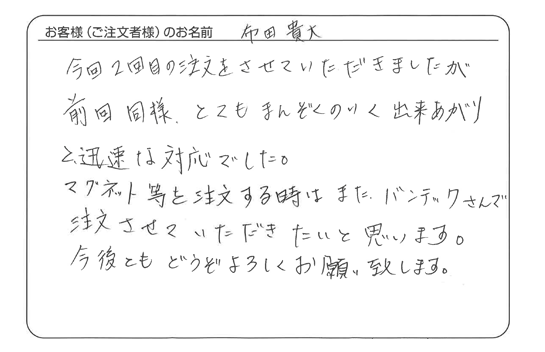 お客様（ご注文者様）のお名前 布田 貴大
今回2回目の注文をさせていただきましたが
前回同様、とてもまんぞくのいく出来あがり
と迅速な対応でした。
マグネット等を注文する時はまた、バンテックさんで
注文させていただきたいと思います。
今後ともどうぞよろしくお願い致します。